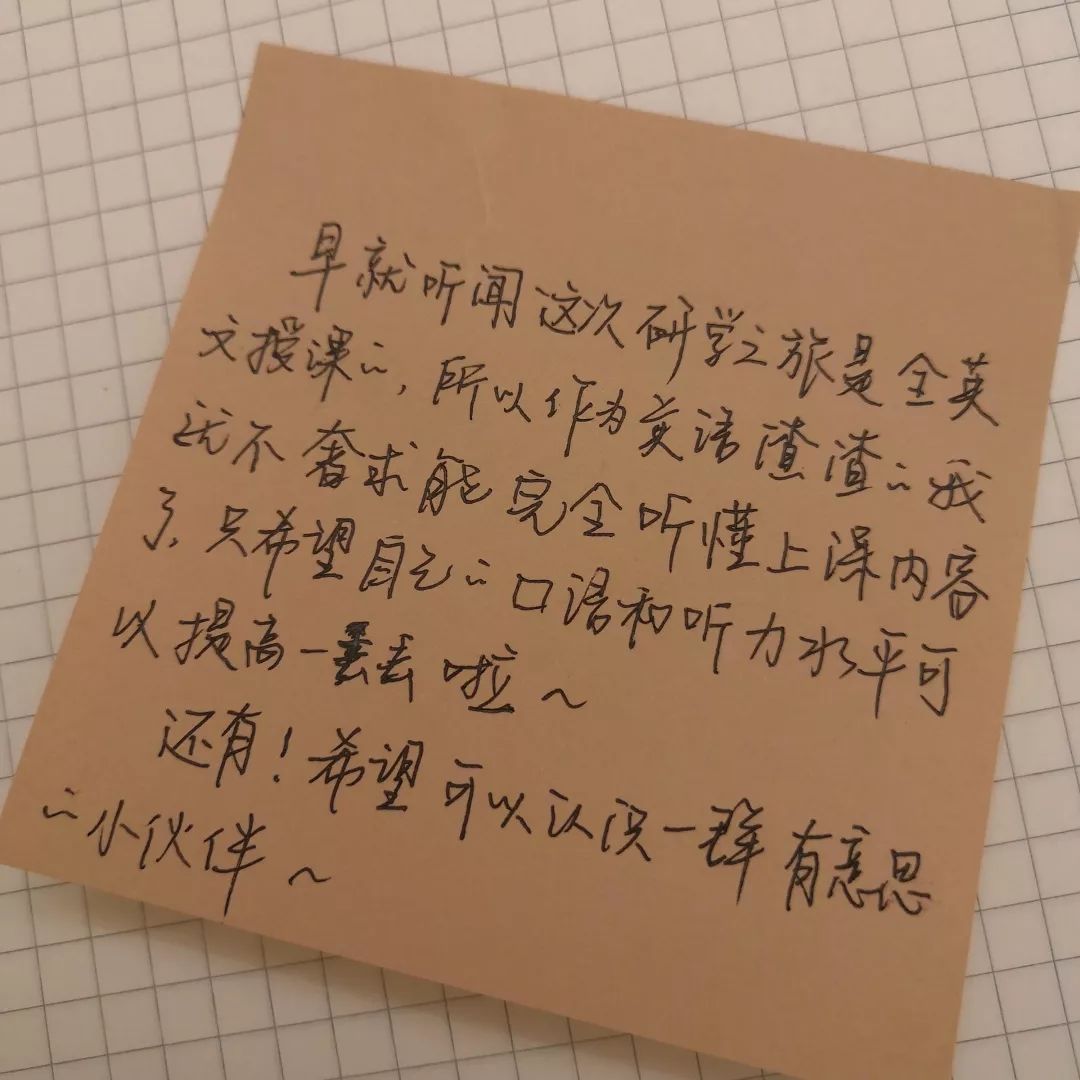 早就听闻这次研学之旅是全英
文授课的，所以作为英语渣渣的我
就不奢求能完全听懂上课内容
了，只希望自己的口语和听力水平可
以提高一丢丢啦～
还有！希望可以认识一群有意思
的小伙伴～